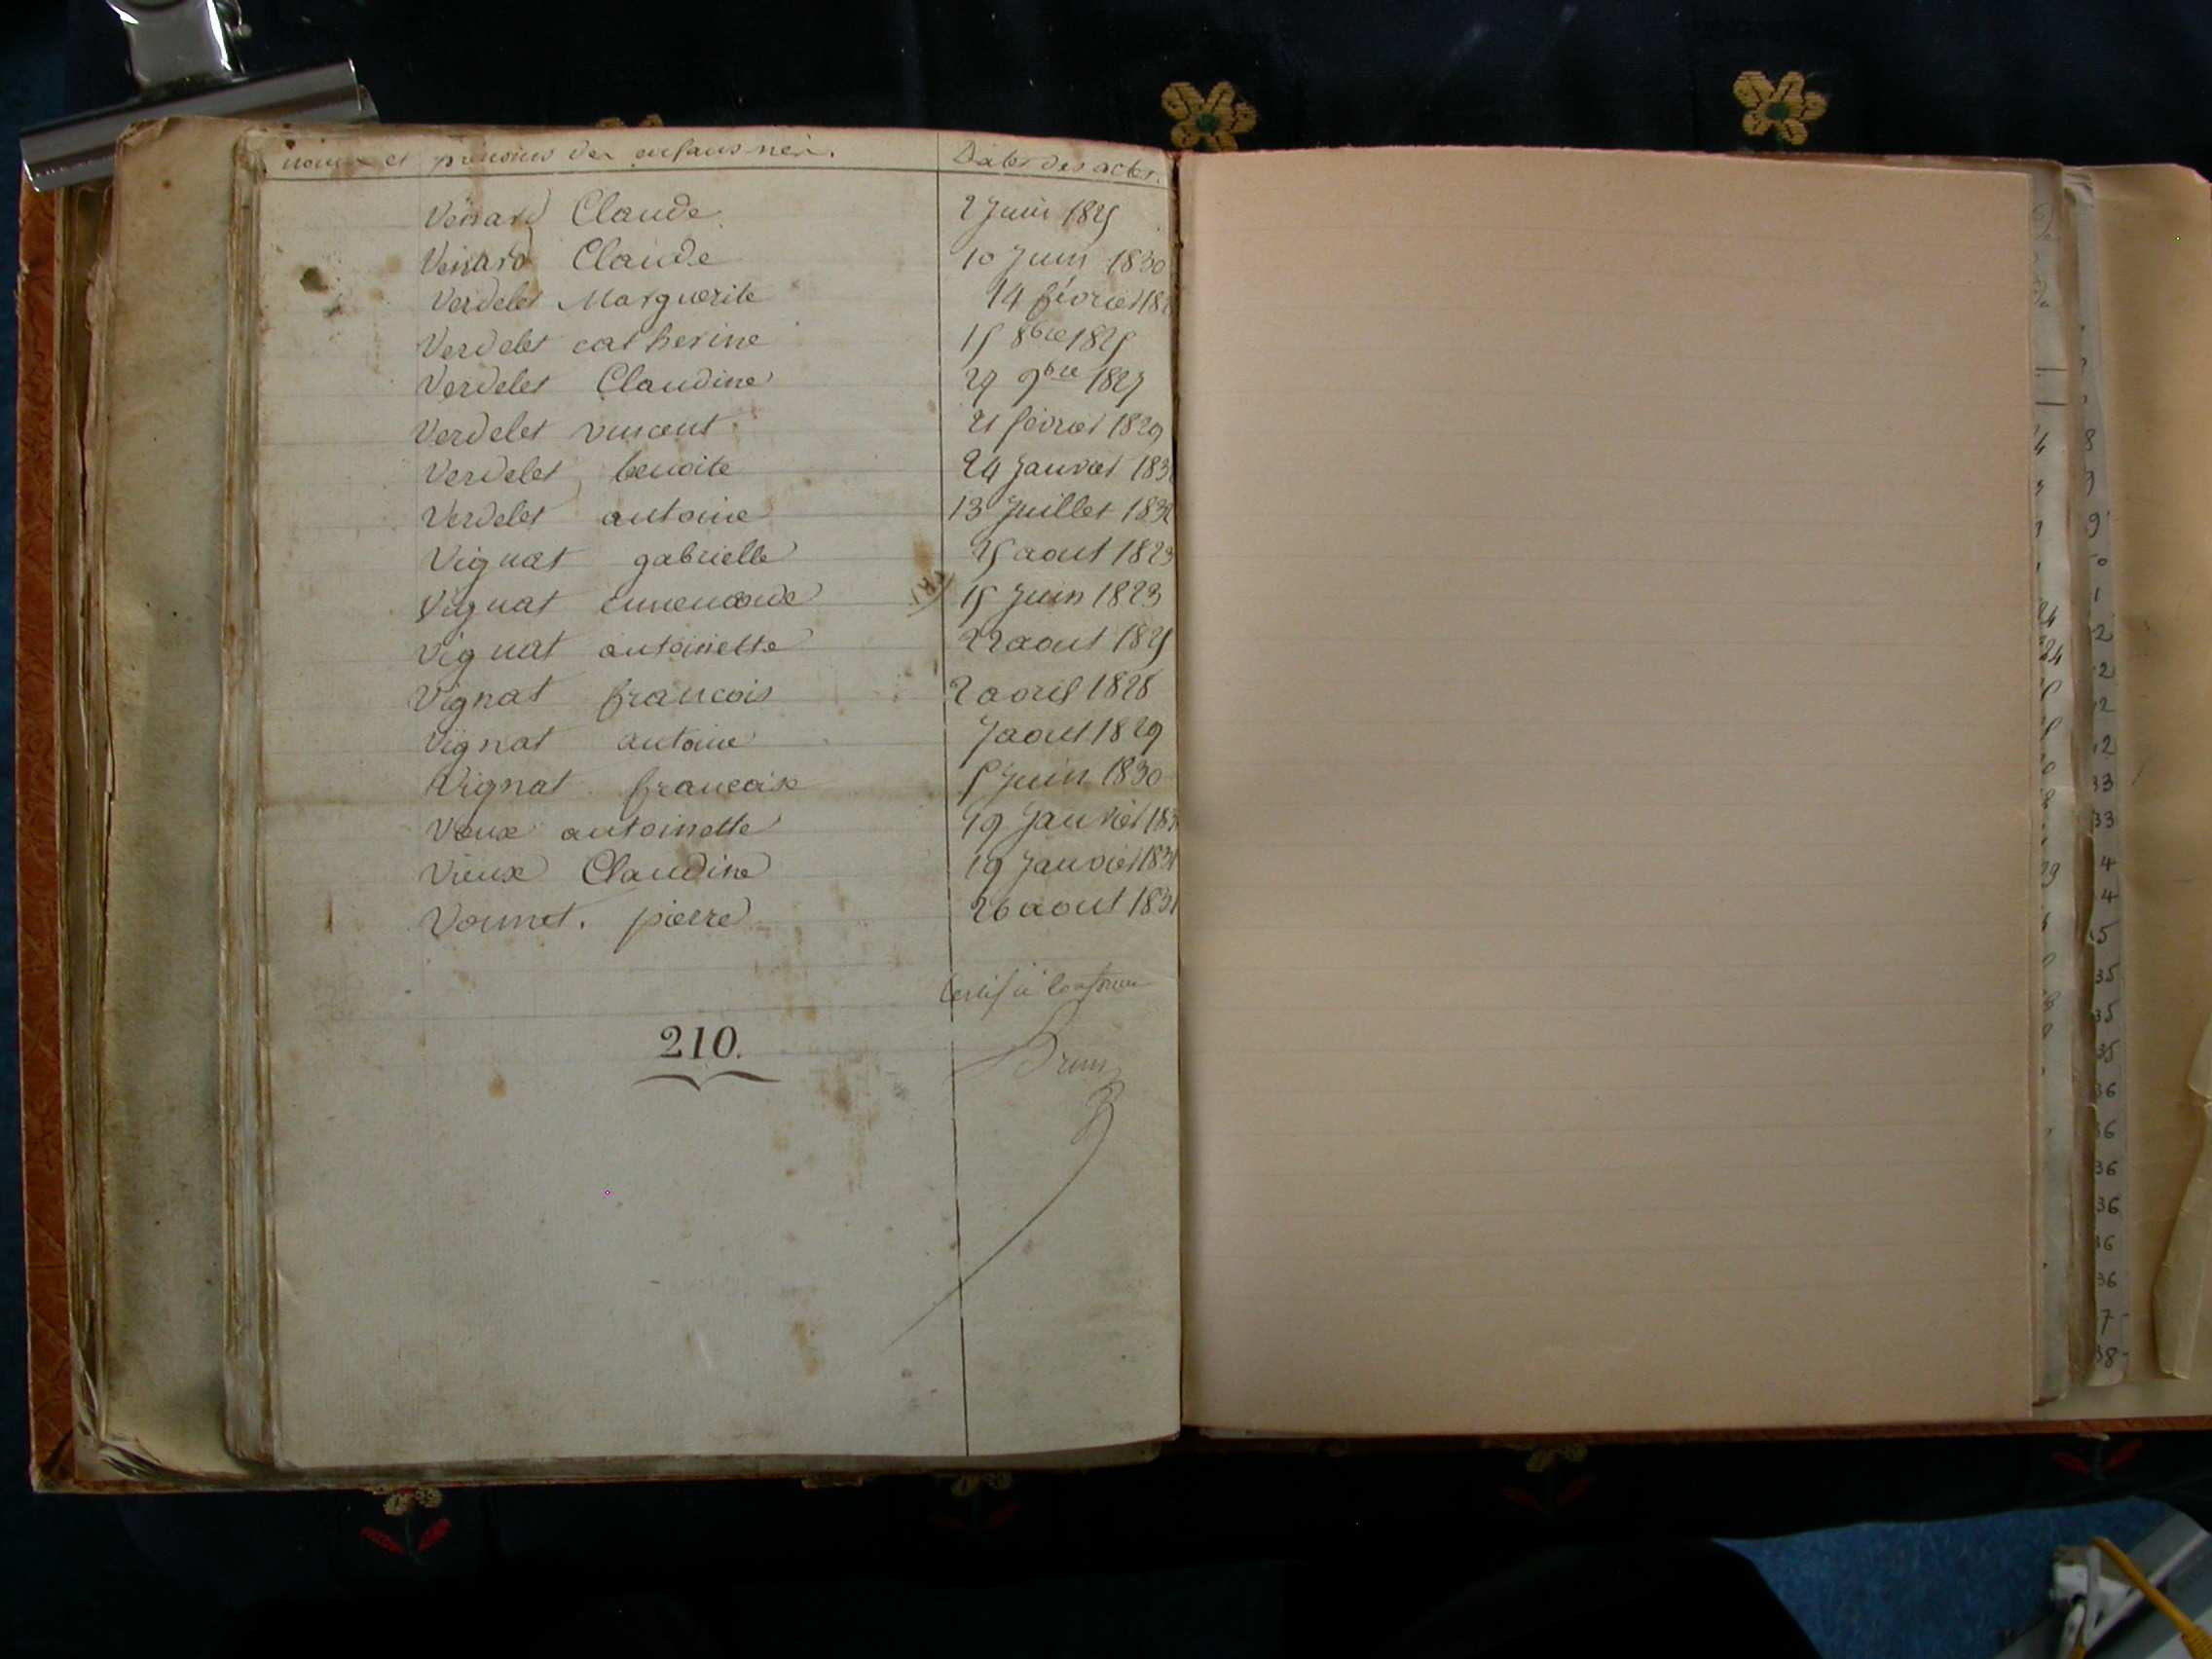 noms et prénoms des enfans nés. Dates des actes.
Venard Claude 2 juin 1825
Venard Claude 10 juin 1830
Verdelet Marguerite 14 février 18
Verdelet catherine 15 8bre 1825
Verdelet Claudine 27 9bre 1827
Verdelet vincent 21 février 1829
Verdelet benoite 24 janvier 183
Verdelet antoine 13 juillet 1832
Vignat gabrielle 25 aout 1823
Vignat 15 juin 1823
Vignat antoinette 22 aout 1825
Vignat francois 2 avril 1828
Vignat antoine 7 aout 1829
Vignat francoise 5 juin 1830
Vieux antoinette 19 janvier 183
Vieux Claudine 19 janvier 1831
pierre 26 aout 1831
Certifié Conforme
210.
Brun